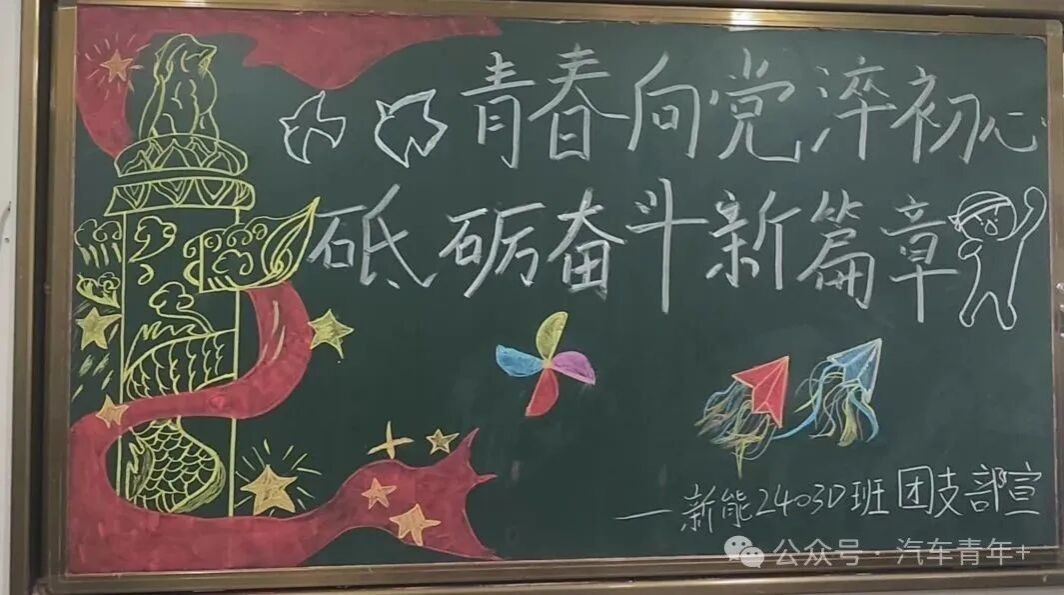 青春向党淬初心
砥砺奋斗新篇章
—新能2403D班团支部宣
公众号·汽车青年+